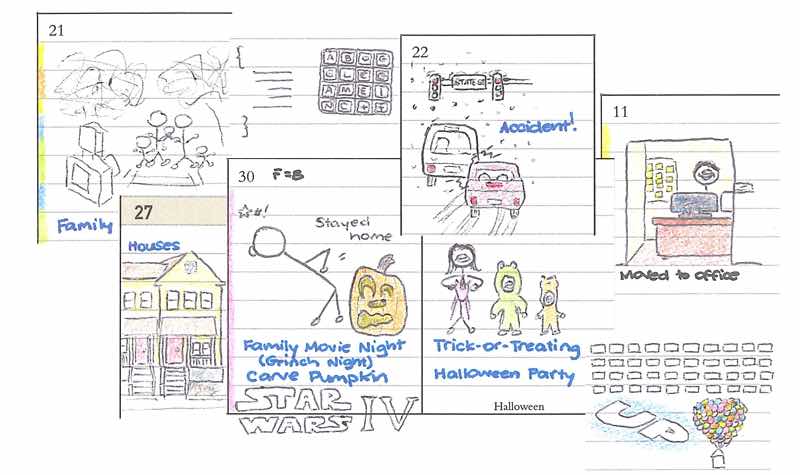 21
Family
A B D G
C L E C
A M E I
N C + +
22
STATE ST
Accident!
11
Moved to office
27
Houses
30 F=B
☆#!
Stayed
home
Family Movie Night
(Grinch Night)
Carve Pumpkin
STAR
WARS IV
Trick-or-Treating
Halloween Party
Halloween
UP